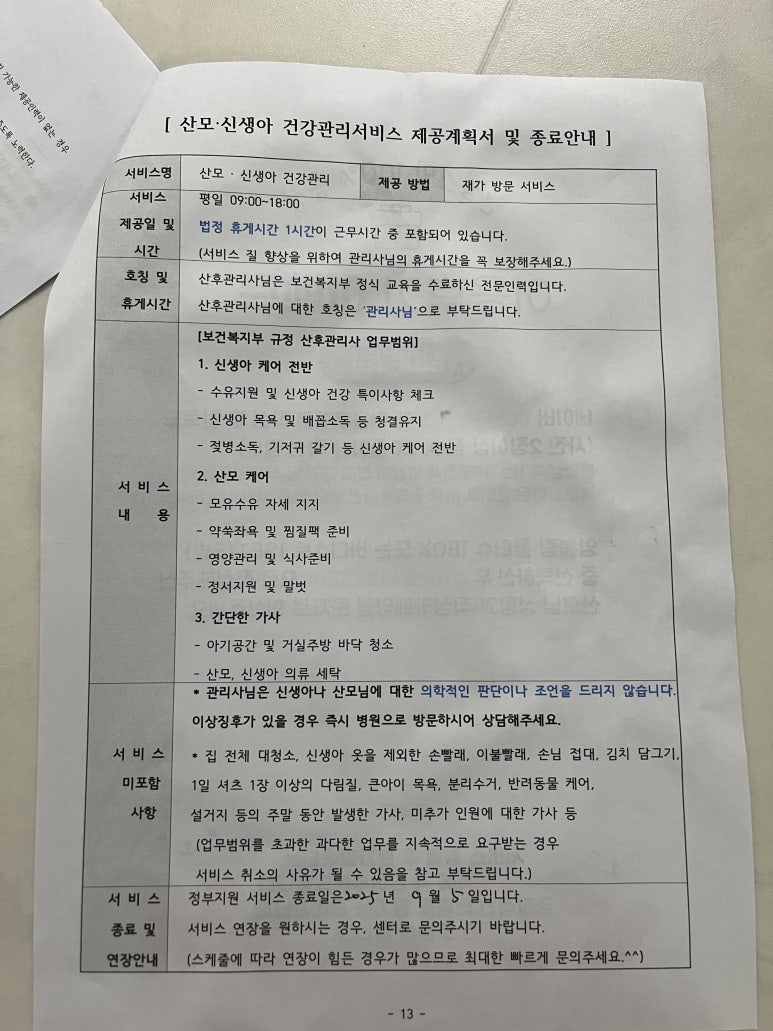 가능한 제공인력이 없는 경우
도록 노력한다.
[ 산모·신생아 건강관리서비스 제공계획서 및 종료안내 ]
서비스명 산모 · 신생아 건강관리 제공 방법 재가 방문 서비스
서비스 제공일 및 시간
평일 09:00~18:00
법정 휴게시간 1시간이 근무시간 중 포함되어 있습니다.
(서비스 질 향상을 위하여 관리사님의 휴게시간을 꼭 보장해주세요.)
호칭 및 휴게시간
산후관리사님은 보건복지부 정식 교육을 수료하신 전문인력입니다.
산후관리사님에 대한 호칭은 '관리사님'으로 부탁드립니다.
서 비 스
내 용
[보건복지부 규정 산후관리사 업무범위]
1. 신생아 케어 전반
- 수유지원 및 신생아 건강 특이사항 체크
- 신생아 목욕 및 배꼽소독 등 청결유지
- 젖병소독, 기저귀 갈기 등 신생아 케어 전반
2. 산모 케어
- 모유수유 자세 지지
- 약쑥좌욕 및 찜질팩 준비
- 영양관리 및 식사준비
- 정서지원 및 말벗
3. 간단한 가사
- 아기공간 및 거실주방 바닥 청소
- 산모, 신생아 의류 세탁
서 비 스
미포함
사항
* 관리사님은 신생아나 산모님에 대한 의학적인 판단이나 조언을 드리지 않습니다.
이상징후가 있을 경우 즉시 병원으로 방문하시어 상담해주세요.
* 집 전체 대청소, 신생아 옷을 제외한 손빨래, 이불빨래, 손님 접대, 김치 담그기,
1일 셔츠 1장 이상의 다림질, 큰아이 목욕, 분리수거, 반려동물 케어,
설거지 등의 주말 동안 발생한 가사, 미추가 인원에 대한 가사 등
(업무범위를 초과한 과다한 업무를 지속적으로 요구받는 경우
서비스 취소의 사유가 될 수 있음을 참고 부탁드립니다.)
서 비 스
종료 및
연장안내
정부지원 서비스 종료일은 2025 년 9 월 5 일입니다.
서비스 연장을 원하시는 경우, 센터로 문의주시기 바랍니다.
(스케줄에 따라 연장이 힘든 경우가 많으므로 최대한 빠르게 문의주세요.^^)
- 13 -